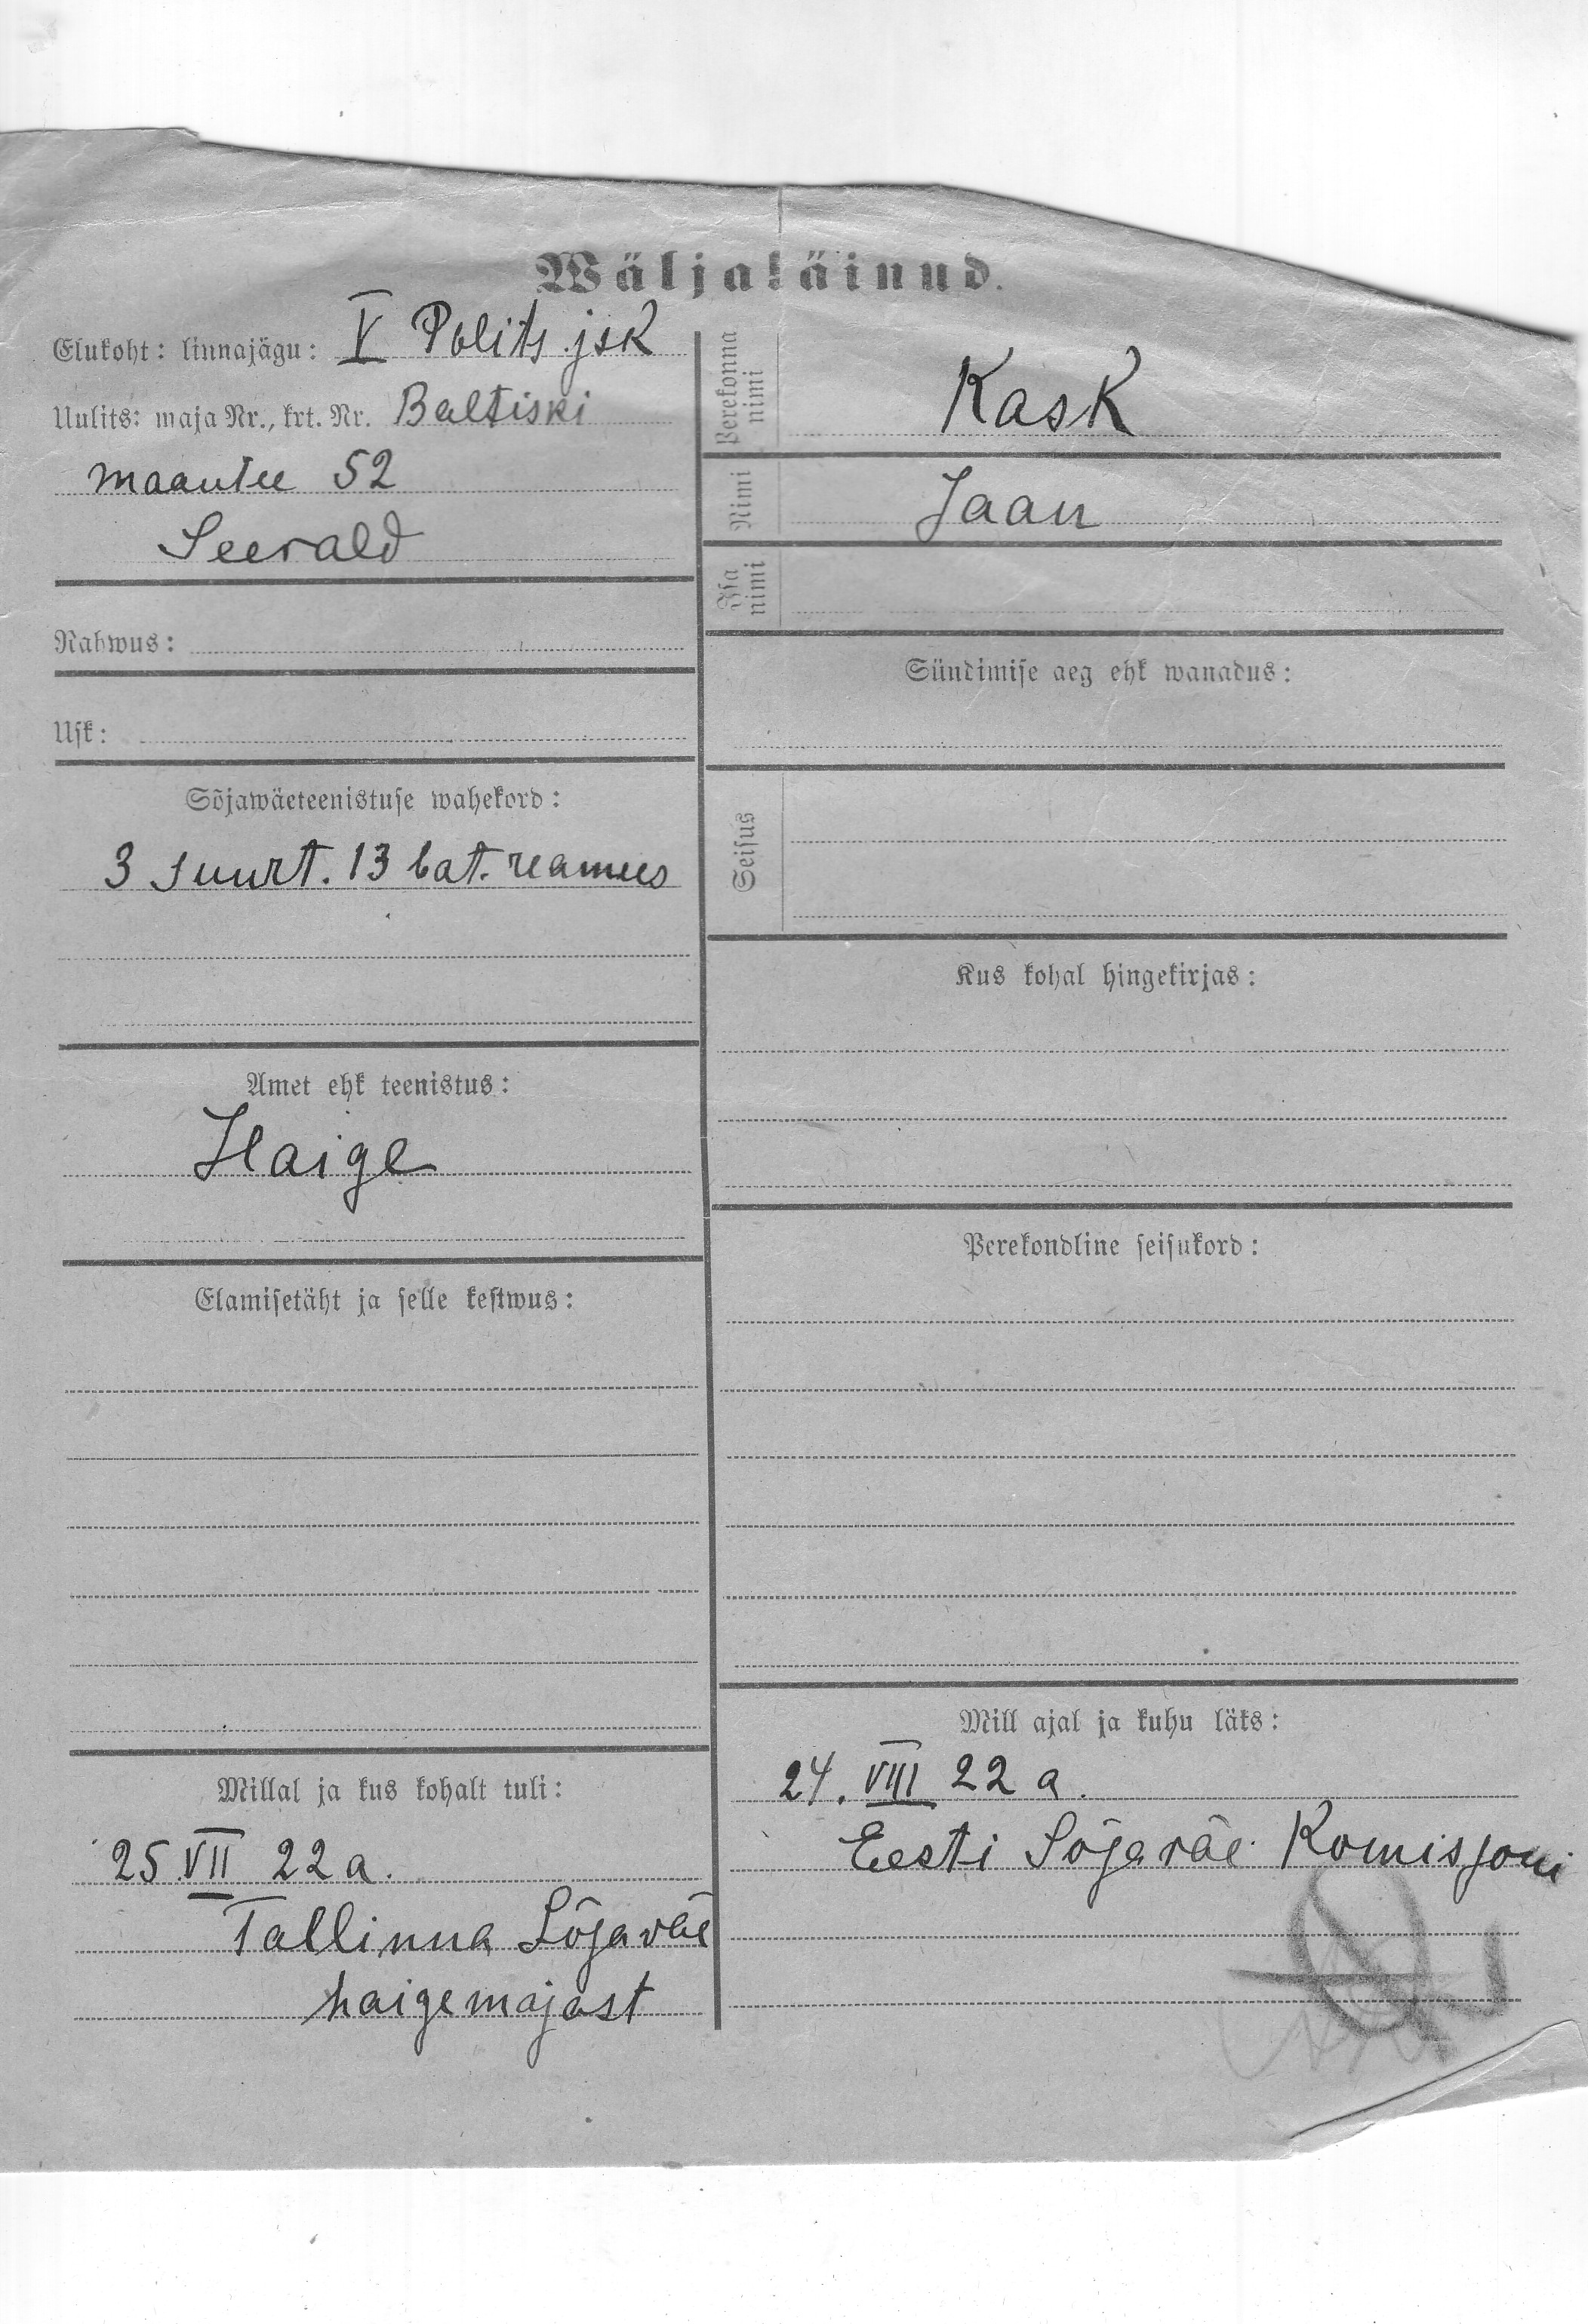 Wäljakäinud.
Elukoht: linnajägu: V Polits. jsk
Uulits: maja Nr., krt. Nr. Baltiski
maantee 52
Seevald
Rahwus:
Usk:
Sõjawäeteenistuse wahekord:
3 suurt. 13 bat. reamees
Amet ehk teenistus:
Haige
Elamisetäht ja selle kestwus:
Millal ja kus kohalt tuli:
25. VII 22 a.
Tallinna Sõjaväe
haigemajast
Perekonna nimi Kask
Nimi Jaan
Isa nimi
Sündimise aeg ehk wanadus:
Seisus
Kus kohal hingekirjas:
Perekondline seisukord:
Mill ajal ja kuhu läks:
24. VIII 22 a.
Eesti Sõjaväe Komisjoni